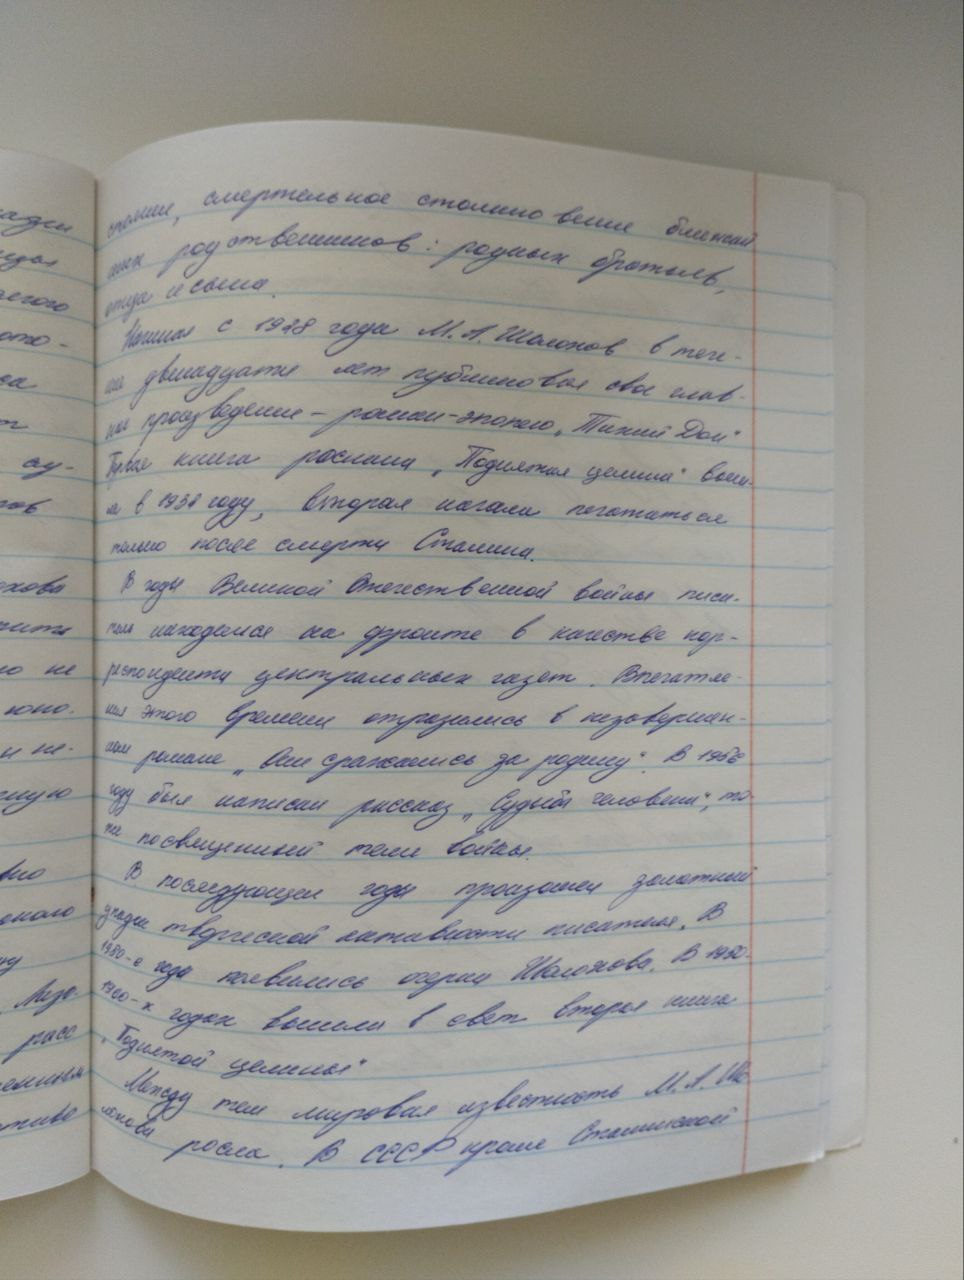 адги
стояние, смертельное столкновение ближай
ших родственников: родных братьев,
отца и сына.
Начиная с 1928 года М. А. Шолохов в тече-
нии двенадцати лет публиковал свое глав-
ное произведение – роман-эпопею „Тихий Дон"
книга романа „Поднятая целина" выш-
ла в 1932 году, вторая начала печататься
только после смерти Сталина.
В годы Великой Отечественной войны писа-
тель находился на фронте в качестве кор-
респондента центральных газет. Впечатле-
ния этого времени отразились в незавершен-
ном романе „Они сражались за родину". В 1956
году был написан рассказ „Судьба человека", то-
же посвященный теме войны.
В последующие годы произошел заметный
упадок творческой активности писателя. В
1950-е годы появились очерки Шолохова. В 1950-
1960-х годах вышли в свет вторая книга
„Поднятой целины"
Между тем мировая известность М. А. Шо
лохова росла. В СССР кроме Сталинской
его
ото-
са
су-
тов
охова
но не
юно.
и не-
ную
оного
Лизо-
расс